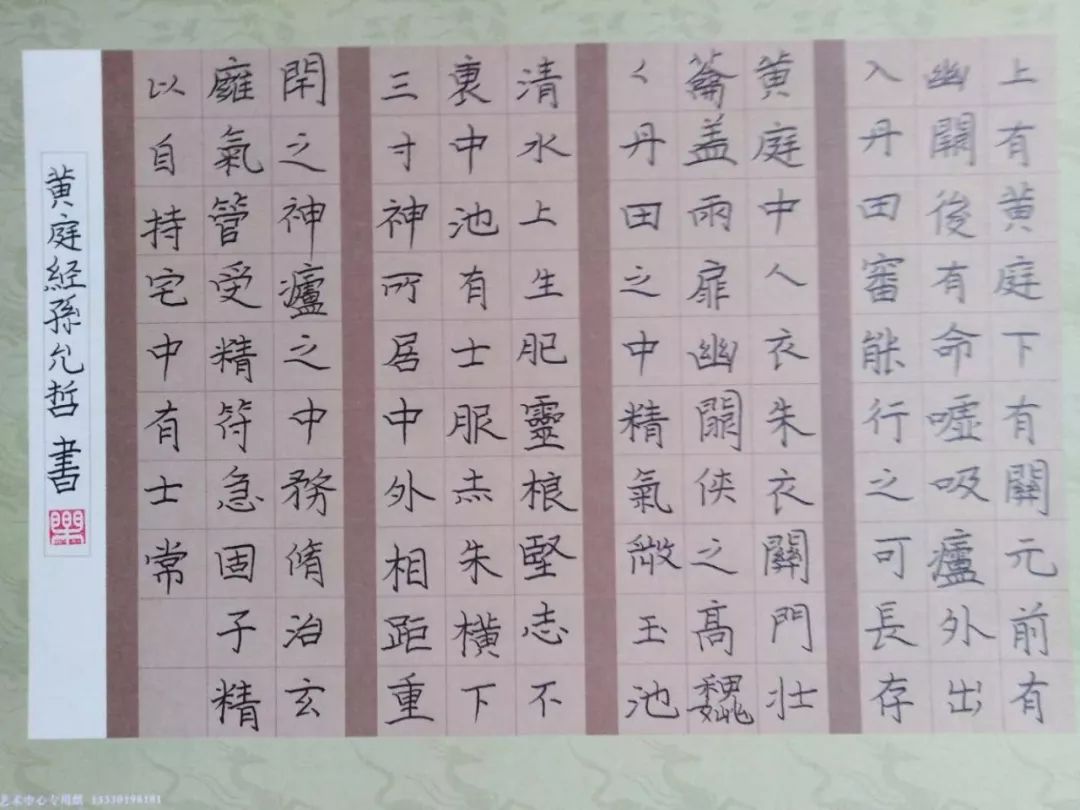 上有黄庭下有關元前有
幽關後有命噓吸廬外出
入丹田審能行之可長存
黄庭中人衣朱衣關門壯
蘥盖兩扉幽關俠之高魏
々丹田之中精氣微玉池
清水上生肥靈根堅志不
裏中池有士服赤朱横下
三寸神所居中外相距重
閉之神廬之中務脩治玄
廱氣管受精符急固子精
以自持宅中有士常
黄庭経孫允哲書
艺术中心专用纸